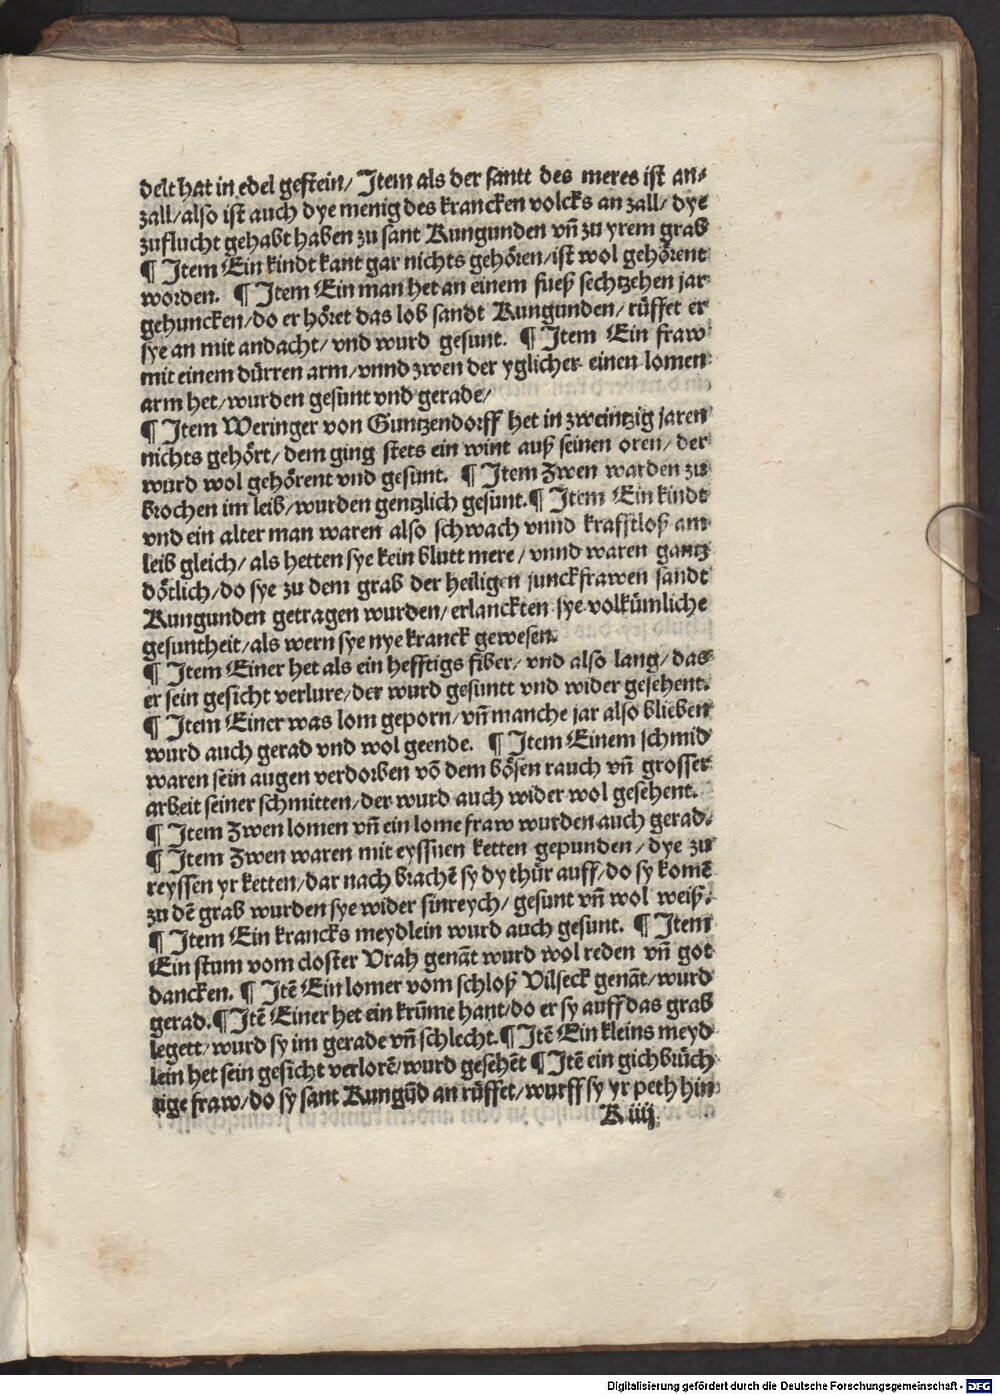 delt hat in edel gestein/ Item als der santt des meres ist an⸗
zall/also ist auch dye menig des krancken volcks an zall/ dye
zuflucht gehabt haben zu sant Kungunden vn̄ zu yrem grab
¶ Item Ein kindt kant gar nichts gehören/ist wol gehörent
worden. ¶ Item Ein man het an einem fueß sechtzehen jar
gehuncken/do er höret das lob sandt Kungunden/ rüffet er
sye an mit andacht/ vnd wurd gesunt. ¶ Item Ein fraw
mit einem dürren arm/vnnd zwen der yglicher einen lomen
arm het/wurden gesunt vnd gerade/
¶ Item Weringer von Guntzendorff het in zweintzig jaren
nichts gehört/ dem ging stets ein wint auß seinen oren/ der
wurd wol gehörent vnd gesunt. ¶ Item Zwen warden zu
brochen im leib/wurden gentzlich gesunt.¶ Item Ein kindt
vnd ein alter man waren also schwach vnnd krafftloß am
leib gleich/ als hetten sye kein blutt mere/ vnnd waren gantz
dötlich/do sye zu dem grab der heiligen junckfrawen sandt
Kungunden getragen wurden/ erlanckten sye volkümliche
gesuntheit/als wern sye nye kranck gewesen.
¶ Item Einer het als ein hefftigs fiber/ vnd also lang/ das
er sein gesicht verlure/der wurd gesuntt vnd wider gesehent.
¶ Item Einer was lom geporn/vn̄ manche jar also blieben
wurd auch gerad vnd wol geende. ¶ Item Einem schmid
waren sein augen verdorben vō dem bösen rauch vn̄ grosser
arbeit seiner schmitten/der wurd auch wider wol gesehent.
¶ Item Zwen lomen vn̄ ein lome fraw wurden auch gerad.
¶ Item Zwen waren mit eyssnen ketten gepunden/ dye zu
reyssen yr ketten/dar nach brachē sy dy thür auff/do sy komē
zu dē grab wurden sye wider sinreych/ gesunt vn̄ wol weiß.
¶ Item Ein krancks meydlein wurd auch gesunt. ¶ Item
Ein stum vom closter Vrah genāt wurd wol reden vn̄ got
dancken. ¶ Itē Ein lomer vom schloß Vilseck genāt/wurd
gerad.¶ Itē Einer het ein krūme hant/do er sy auff das grab
legett/wurd sy im gerade vn̄ schlecht.¶ Itē Ein kleins meyd
lein het sein gesicht verlorē/wurd gesehēt ¶ Itē ein gichbrüch
tige fraw/do sy sant Kungūd an rüffet/wurff sy yr peth hin
K iiij
Digitalisierung gefördert durch die Deutsche Forschungsgemeinschaft - DFG